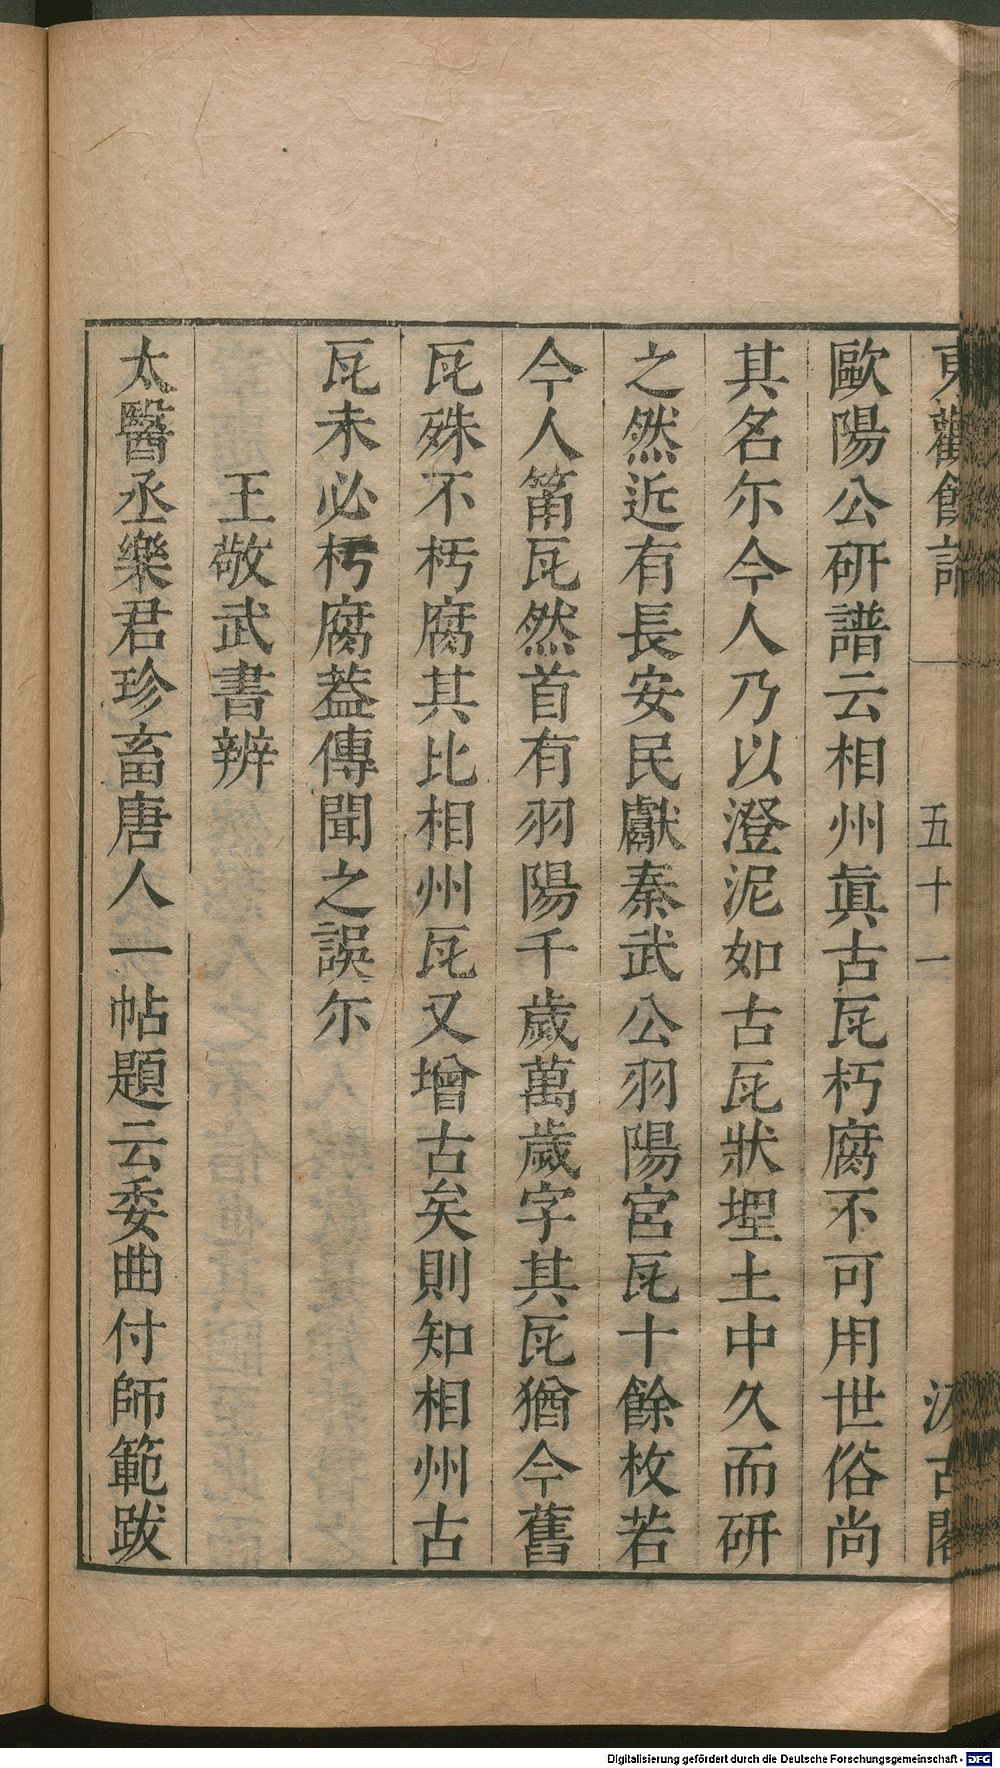 東觀餘論　五十一　汲古閣
歐陽公硏譜云相州眞古瓦朽腐不可用世俗尚
其名尓今人乃以澄泥如古瓦狀埋土中久而硏
之然近有長安民獻秦武公羽陽宮瓦十餘枚若
今人筩瓦然首有羽陽千歲萬歲字其瓦猶今舊
瓦殊不朽腐其比相州瓦又增古矣則知相州古
瓦未必朽腐葢傳聞之誤尓
王敬武書辨
太醫丞樂君珍畜唐人一帖題云委曲付師範跋
Digitalisierung gefördert durch die Deutsche Forschungsgemeinschaft - DFG